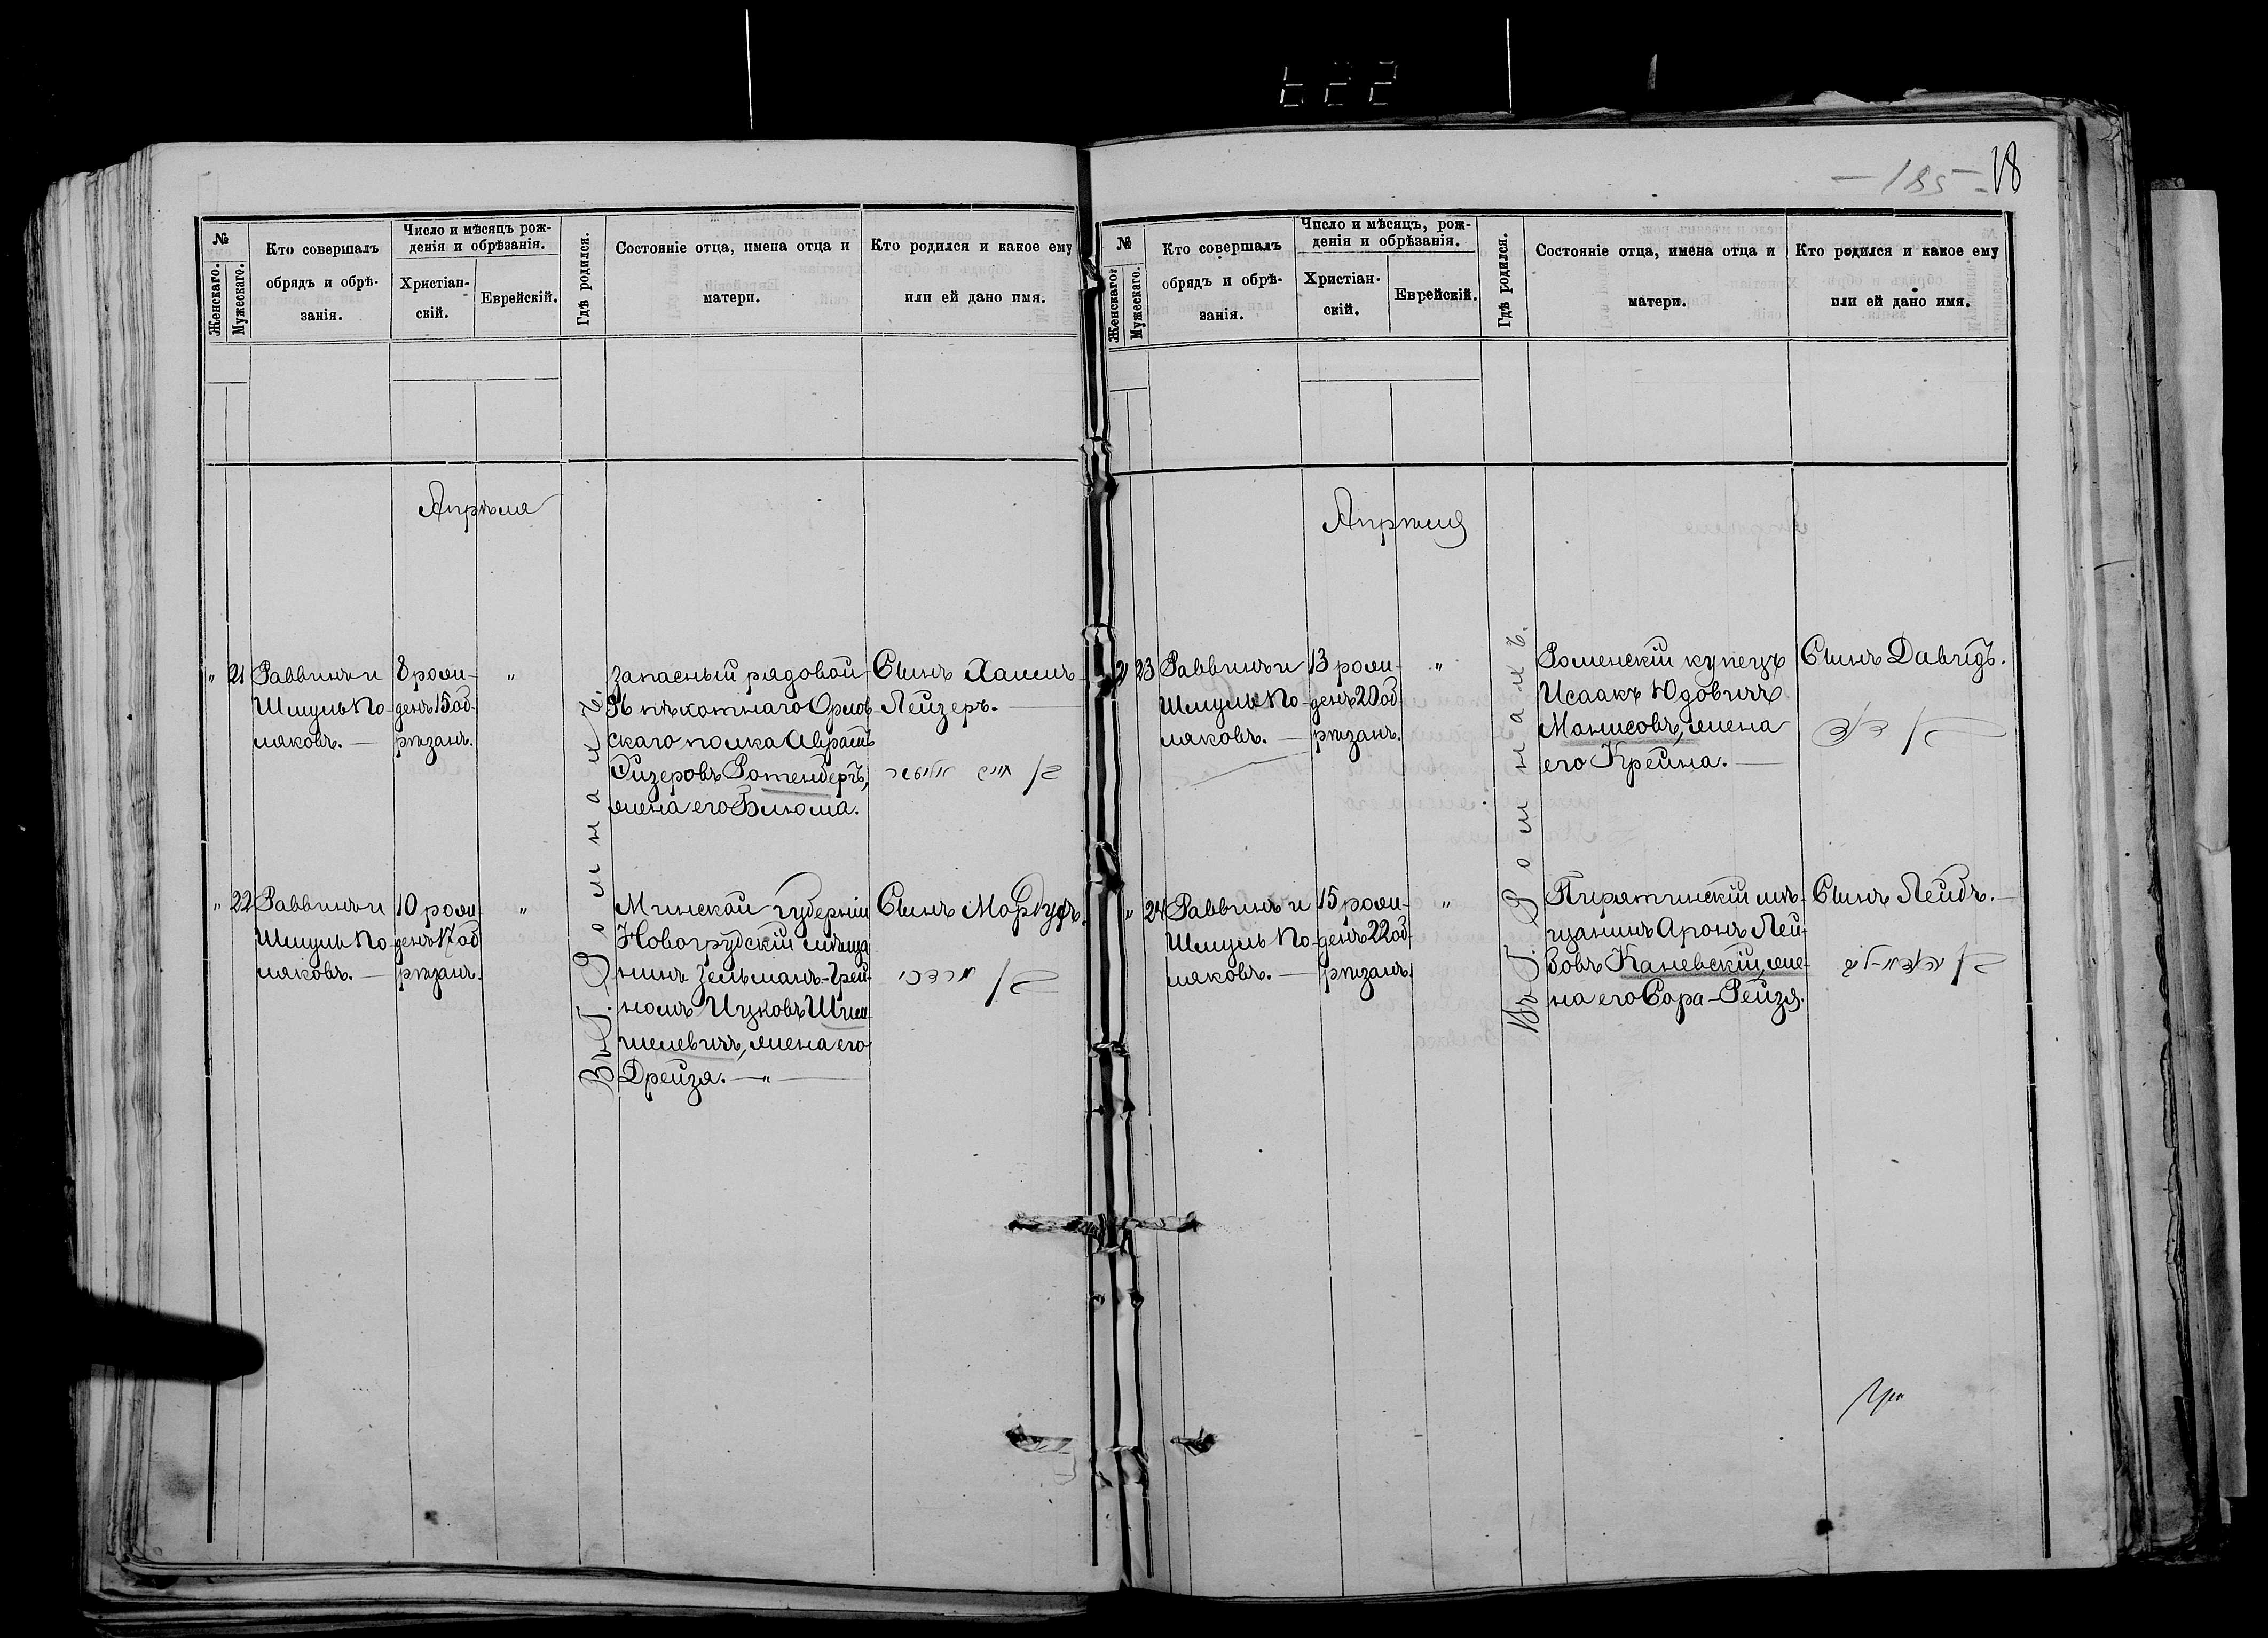 622
— 185 — 18
№
Женскаго.
Мужескаго.
Кто совершалъ
обрядъ и обрѣ-
занія.
Число и мѣсяцъ рож-
денія и обрѣзанія.
Христіан-
скій.
Еврейскій.
Гдѣ родился.
Состояніе отца, имена отца и
матери.
Кто родился и какое ему
или ей дано имя.
Апрѣля
Въ Г. Ромнахъ.
" 21
Раввинъ и
Шмуль По-
ляковъ. —
8 рож-
денъ 15 об-
рѣзанъ.
"
Запасный рядовой
36 пѣхотнаго Орлов-
скаго полка Абрамъ
Лизеровъ Ротенбергъ,
жена его Блюма.
Сынъ Хаимъ-
Лейзеръ. —
ז/ חיים אליעזר
" 22
Раввинъ и
Шмуль По-
ляковъ. —
10 рож-
денъ 17 об-
рѣзанъ.
"
Минской губерніи
Новогрудскій мѣща-
нинъ Зельманъ-Трей-
Ицковъ Шми-
лелевичъ, жена его
Дрейзя. — " —
Сынъ Мордухъ.
ז/ מרדכי
№
Женскаго.
Мужескаго.
Кто совершалъ
обрядъ и обрѣ-
занія.
Число и мѣсяцъ, рож-
денія и обрѣзанія.
Христіан-
скій.
Еврейскій.
Гдѣ родился.
Состояніе отца, имена отца и
матери.
Кто родился и какое ему
или ей дано имя.
Апрѣля
Въ Г. Ромнахъ.
23
Раввинъ и
Шмуль По-
ляковъ. —
13 рож-
денъ 20 об-
рѣзанъ.
"
Роменскій купецъ
Исаакъ Юдовичъ
Манисовъ, жена
его Крейна. —
Сынъ Давидъ.
ז/ דוד
" 24
Раввинъ и
Шмуль По-
ляковъ. —
15 рож-
денъ 22 об-
рѣзанъ.
"
Пирятинскій мѣ-
щанинъ Аронъ Лей-
бовъ Каневскій, же-
на его Сора-Рейзя.
Сынъ Лейбъ. —